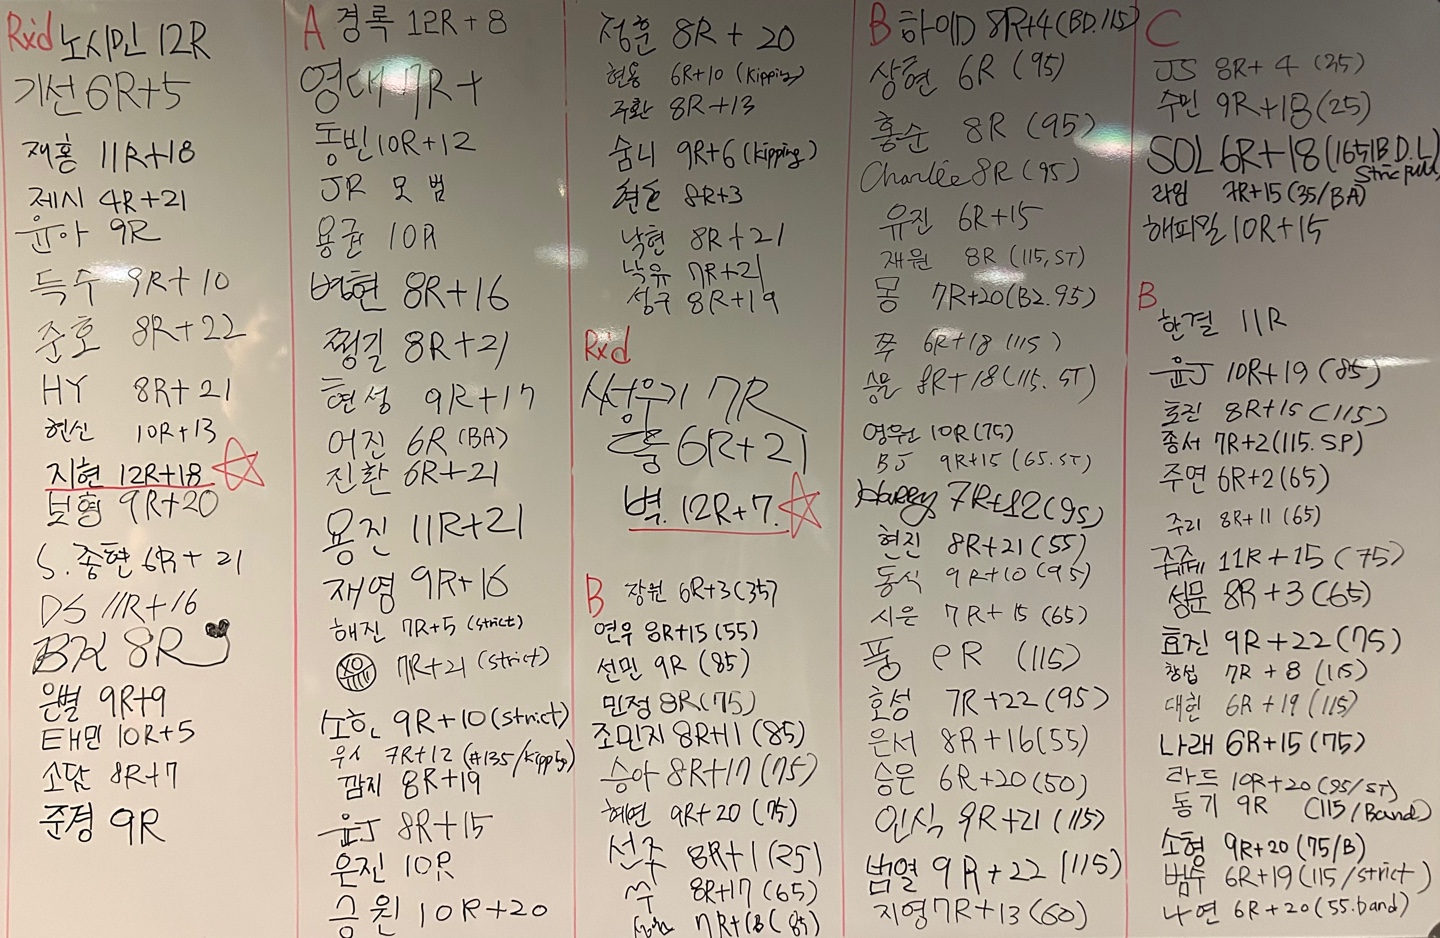 Rxd 노시민 12R
기선 6R+5
재홍 11R+18
제시 4R+21
윤아 9R
득수 9R+10
준호 8R+22
HY 8R+21
현신 10R+13
지현 12R+18
보형 9R+20
S.종현 6R+21
DS 11R+16
BK 8R
은별 9R+9
태민 10R+5
소담 8R+7
준경 9R
A 경록 12R+8
영대 7R+
동빈 10R+12
JR 모범
용권 10R
병현 8R+16
쩡길 8R+21
현성 9R+17
어진 6R (BA)
진환 6R+21
용진 11R+21
재영 9R+16
해진 7R+5 (strict)
7R+21 (strict)
소한 9R+10 (strict)
우시 7R+12 (#135/kipping)
깜지 8R+19
윤J 8R+15
은진 10R
승원 10R+20
정훈 8R+20
현용 6R+10 (kipping)
주환 8R+13
숨니 9R+6 (kipping)
8R+3
낙현 8R+21
낙유 7R+21
성구 8R+19
Rx'd
써성우기 7R
6R+21
벽. 12R+7.
B 장원 6R+3 (35)
연우 8R+15 (55)
선민 9R (85)
민정 8R (75)
조민지 8R+1 (85)
승아 8R+17 (75)
혜연 9R+20 (75)
선주 8R+1 (25)
쑤 8R+17 (65)
7R+18 (85)
B 하이D 8R+4 (BD.115)
상현 6R (95)
홍순 8R (95)
Charlie 8R (95)
유진 6R+15
재원 8R (115, ST)
몽 7R+20 (B2.95)
쭈 6R+18 (115)
승문 8R+18 (115. ST)
영원 10R (75)
BJ 9R+15 (65. ST)
Harry 7R+12 (95)
현진 8R+21 (55)
동식 9R+10 (95)
시은 7R+15 (65)
풍 9R (115)
호성 7R+22 (95)
은서 8R+16 (55)
승은 6R+20 (50)
인식 9R+21 (115)
범열 9R+22 (115)
지영 7R+13 (60)
C
JS 8R+4 (35)
수민 9R+18 (25)
SOL 6R+18 (165/B.D.L)
Stric pull
라임 7R+15 (35/BA)
해피밀 10R+15
B
한결 11R
윤J 10R+19 (85)
효진 8R+15 (115)
종서 7R+2 (115. SP)
주연 6R+2 (65)
주리 8R+11 (65)
쥼쥼 11R+15 (75)
성문 8R+3 (65)
효진 9R+22 (75)
창섭 7R+8 (115)
대한 6R+19 (115)
나래 6R+15 (75)
라드 10R+20 (95/ST)
동기 9R (115/Band)
소형 9R+20 (75/B)
범수 6R+19 (115/strict)
나연 6R+20 (55.band)